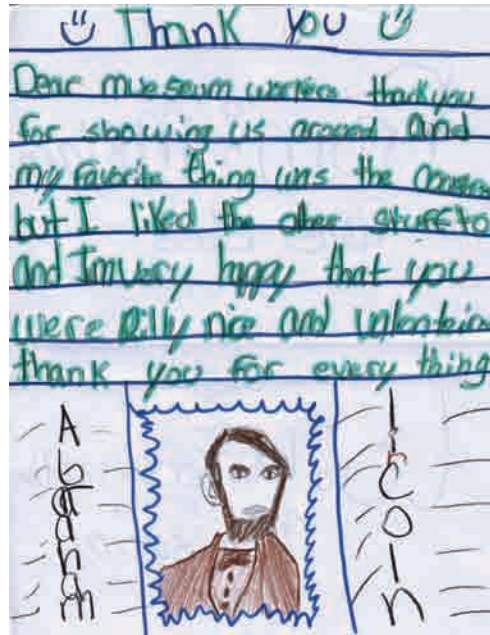 Thank You
Dear museum workers thank you
for showing us around And
my favorite thing was the
but I liked the other stuff to
and Im very happy that you
were rilly nice and
thank you for every thing
Abraham
lincoln